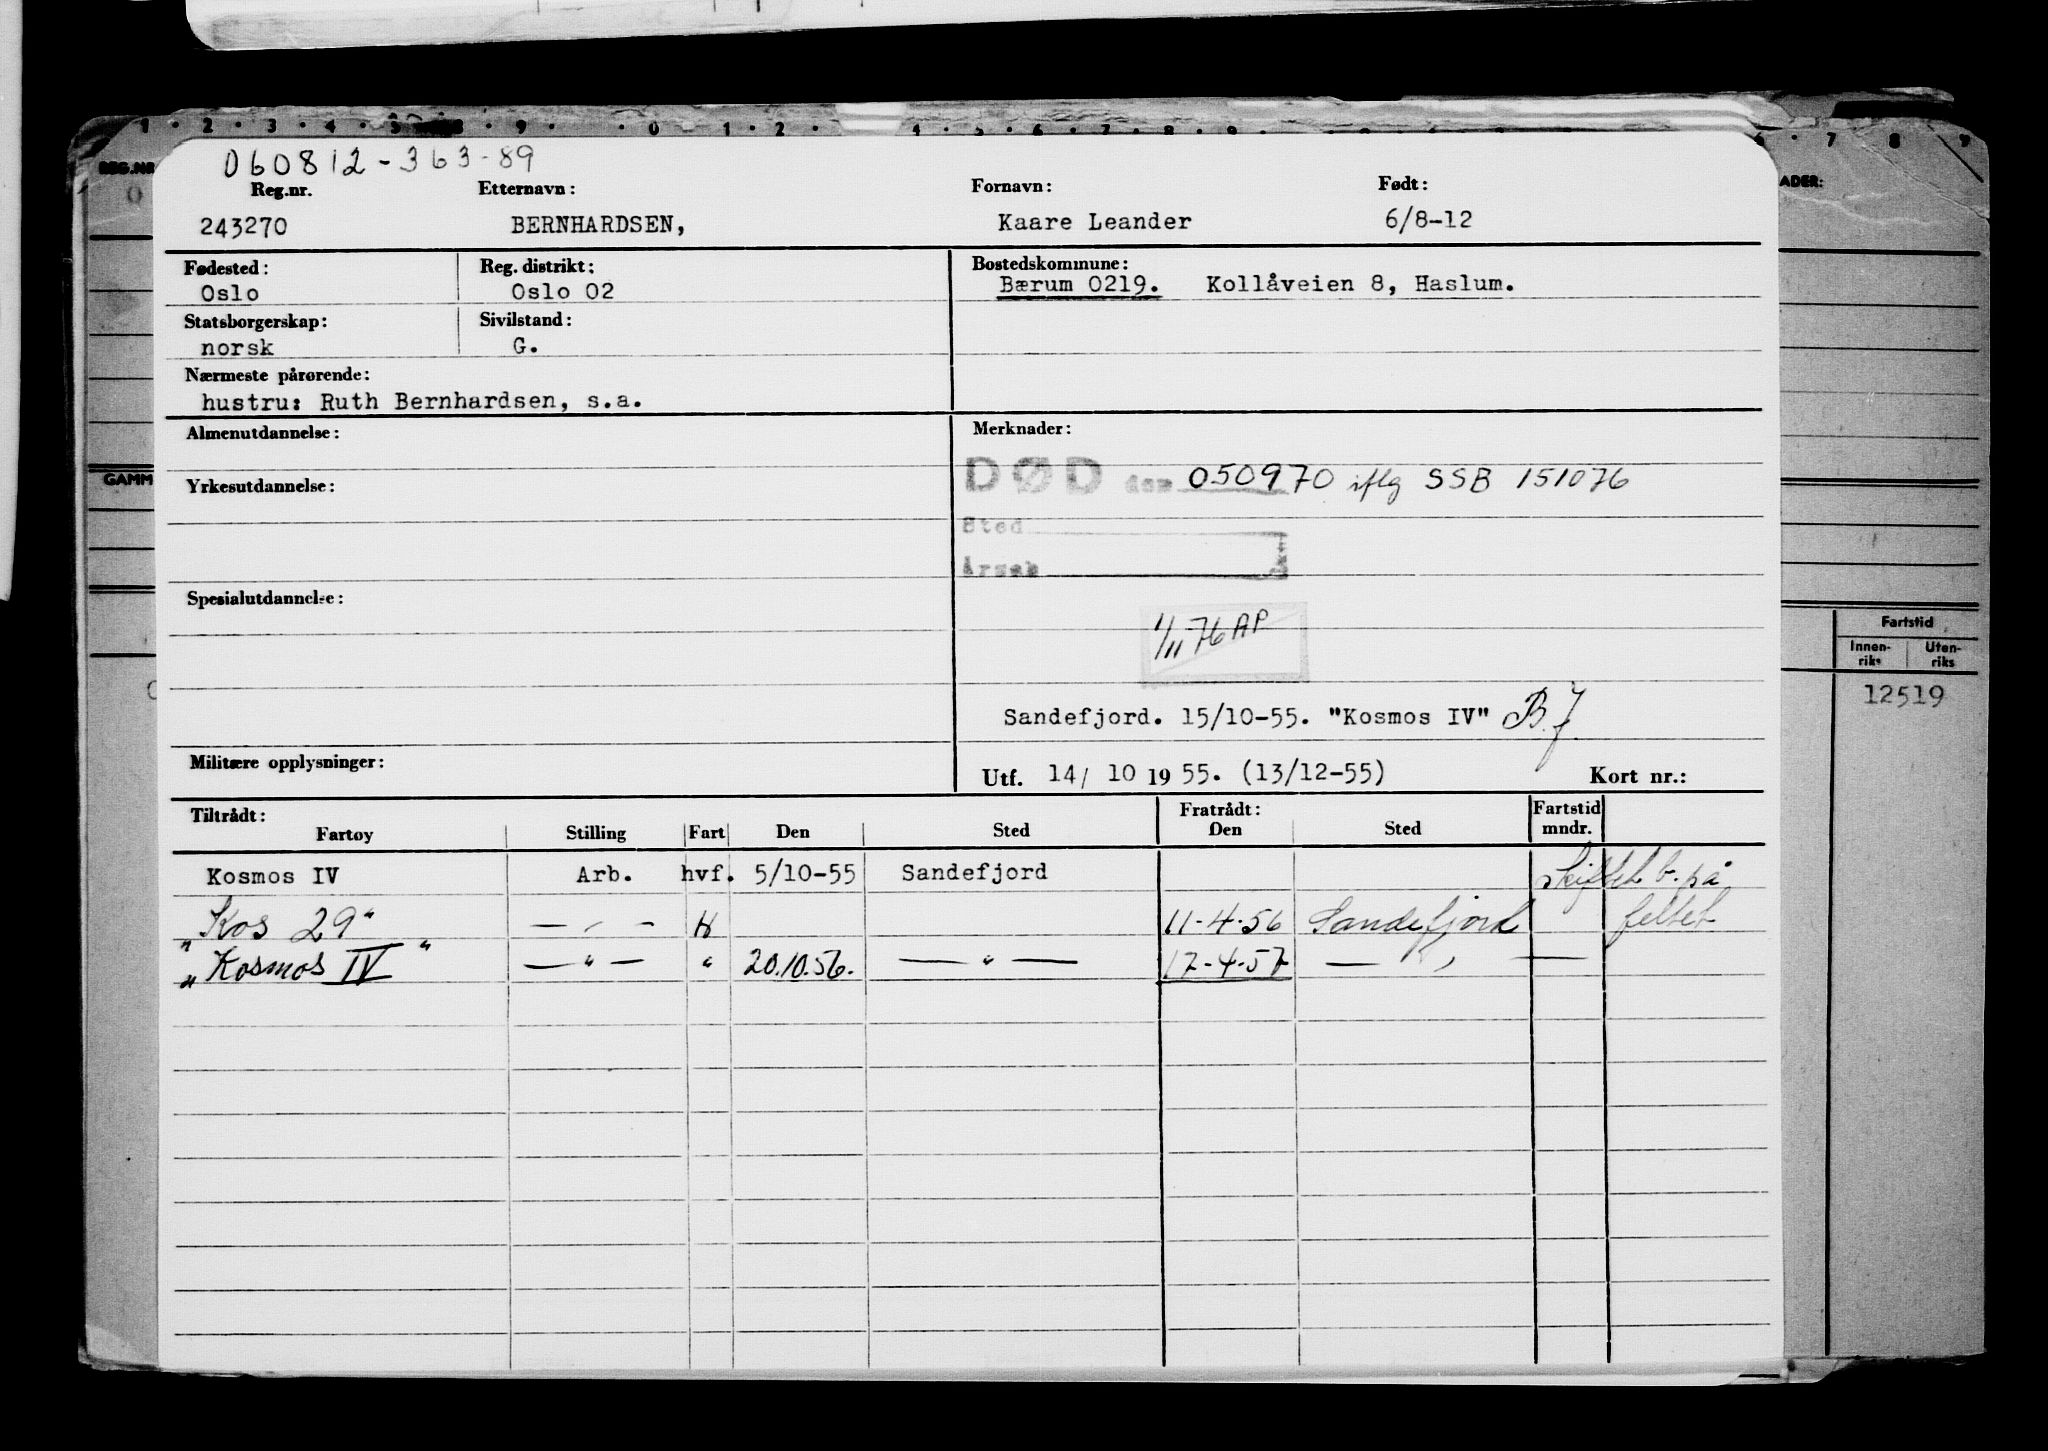 060812-363-89
Reg.nr. Etternavn: Fornavn: Født:
243270 BERNHARDSEN, Kaare Leander 6/8-12
Fødested: Reg. distrikt: Bostedskommune:
Oslo Oslo 02 Bærum 0219. Kollåveien 8, Haslum.
Statsborgerskap: Sivilstand:
norsk G.
Nærmeste pårørende:
hustru: Ruth Bernhardsen, s.a.
Almenutdannelse: Merknader:
DØD den 050970 iflg SSB 151076
Yrkesutdannelse:
Sted
Årsak
Spesialutdannelse:
1/11 76 AP
Sandefjord. 15/10-55. "Kosmos IV" B.J.
Militære opplysninger: Utf. 14/ 10 1955. (13/12-55) Kort nr.:
Tiltrådt: Fratrådt: Fartstid
Fartøy Stilling Fart Den Sted Den Sted mndr.
Kosmos IV Arb. hvf. 5/10-55 Sandefjord Skiftet b. på
"Kos 29" — " — H 11-4-56 Sandefjord feltet
"Kosmos IV" — " — " 20.10.56. — " — 17-4-57 — " —
REG.NR
GAMM
ADER:
Fartstid
Innen-riks Uten-riks
12519